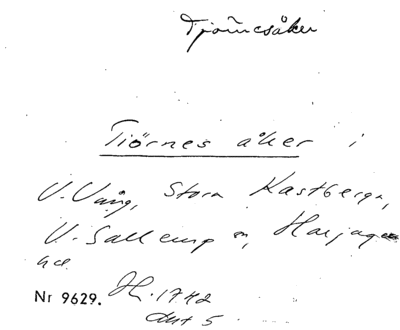 Tjörnesåker
Tiörnes åker i
V. Vång, Stora Kastberga,
V. Sallerup s., Harjagers
hd.
Nr 9629. Jh. 1742
akt 5